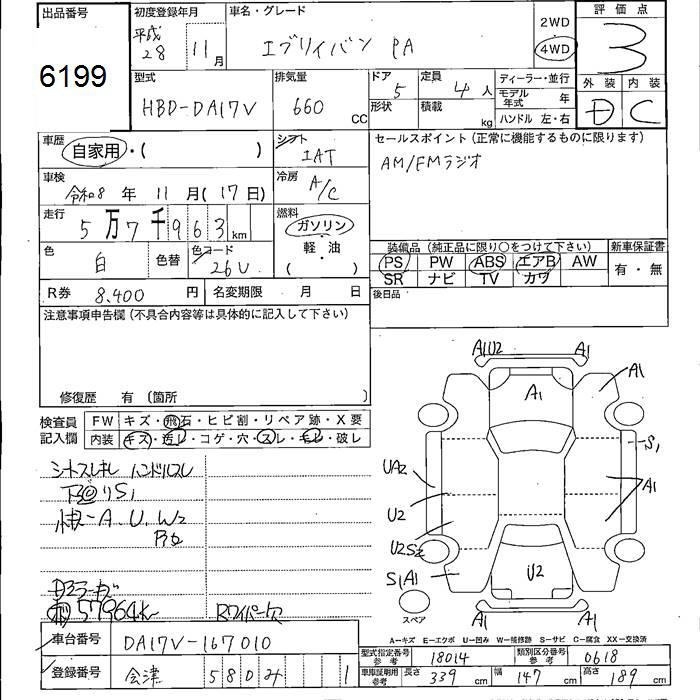 出品番号
6199
初度登録年月
平成28 11月
車名・グレード
エブリイバン PA
2WD
4WD
評価点
3
外装 内装
D C
型式
HBD-DA17V
排気量
660 CC
ドア
5
形状
定員
4 人
積載
kg
ディーラー・並行
モデル年式 年
ハンドル 左・右
車歴
自家用・( )
シフト
IAT
セールスポイント (正常に機能するものに限ります)
AM/FMラジオ
車検
令和8年 11月(17日)
冷房
A/C
走行
5万7千963km
燃料
ガソリン・
軽・油
( )
色
白
色替
色コード
26U
装備品 (純正品に限り○をつけて下さい)
PS PW ABS エアB AW
SR ナビ TV カワ
新車保証書
有・無
R券 8,400 円
名変期限 月 日
後日品
注意事項申告欄 (不具合内容等は具体的に記入して下さい)
修復歴 有 (箇所 )
検査員記入欄
FW キズ・飛石・ヒビ割・リペア跡・X要
内装 キズ・汚レ・コゲ・穴・スレ・モレ・破レ
シートスレキレ ハンドルスレ
S1
A.U.W2
57964K
Rワイパー欠
車台番号
DA17V-167010
登録番号
会津 580 み 1
A1U2 A1
A1
A1
S1
UA2
A1
U2
U2S2
S1A1
U2
A1 A1
スペア
A-キズ E-エクボ U-凹み W-補修跡 S-サビ C-腐食 XX-交換済
型式指定番号参考
18014
類別区分番号参考
0618
車庫証明用参考
長さ 339 cm
幅 147 cm
高さ 189 cm